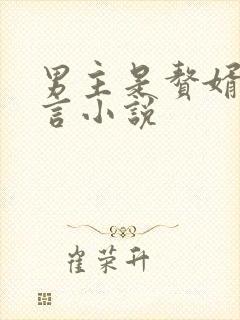 男主是赘婿
言小说
崔荣升